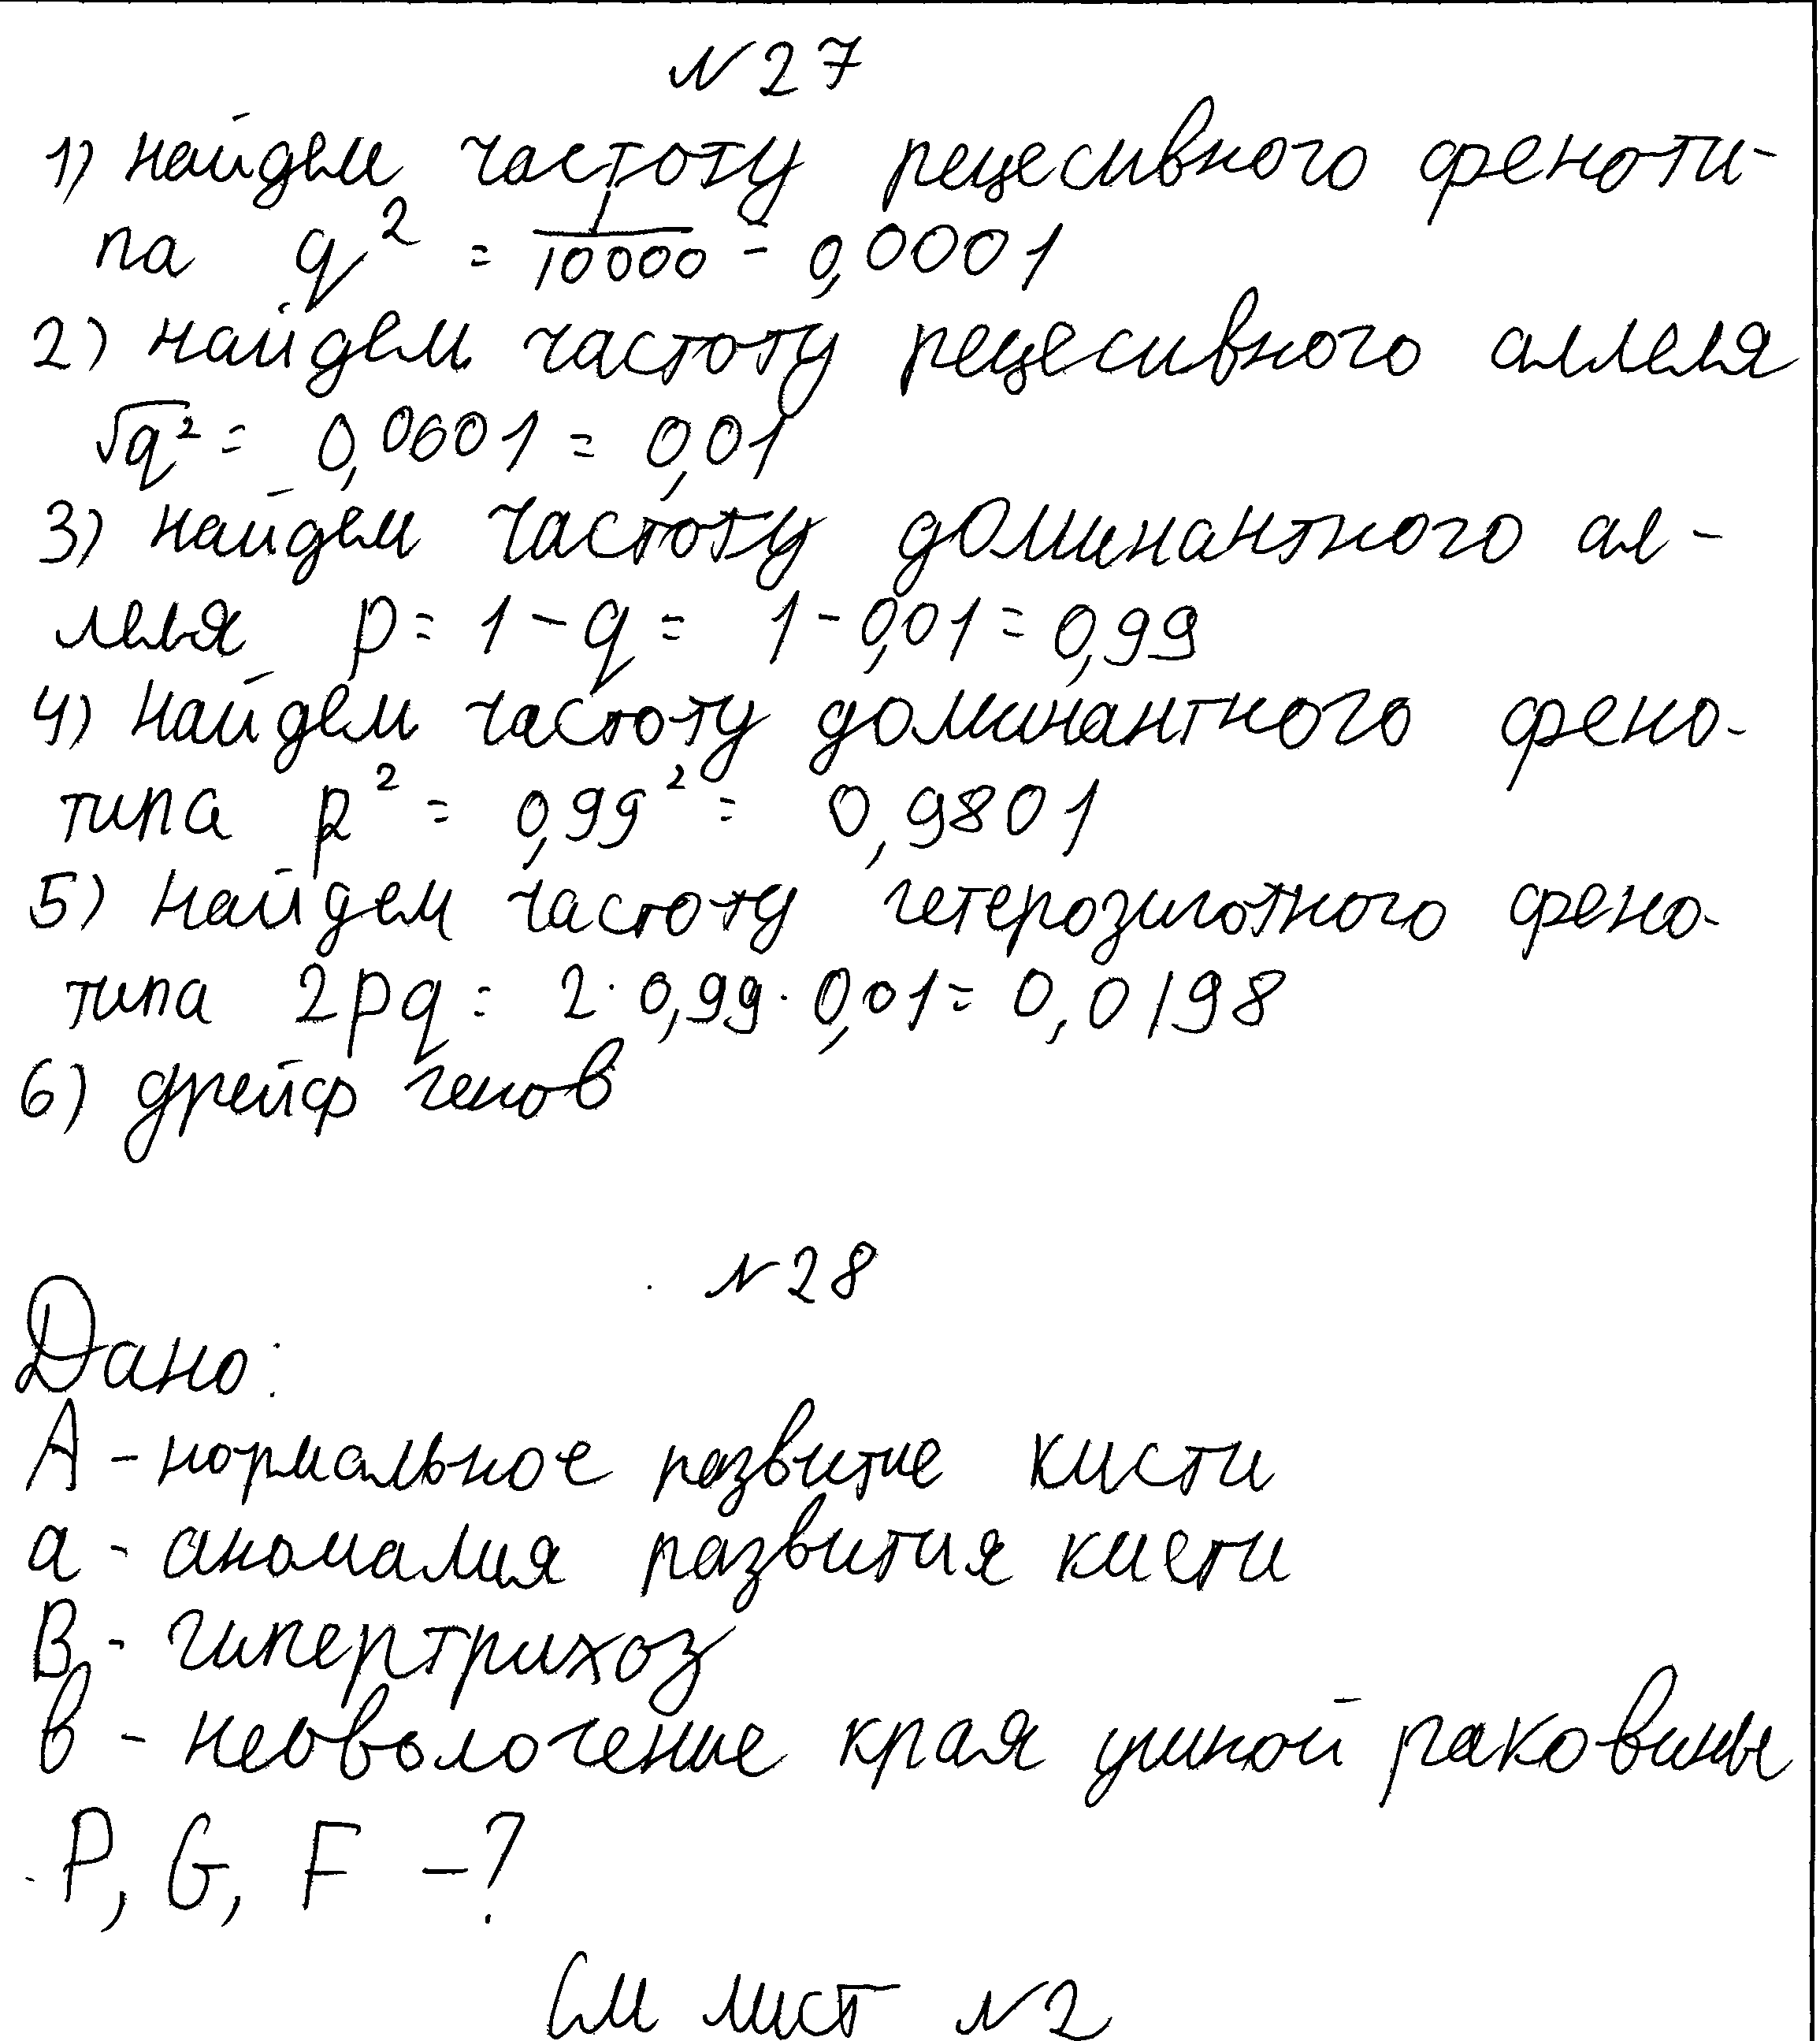 N 27
1) найдем частоту рецесивного феноти-
па q² = 1/10000 = 0,0001
2) найдем частоту рецесивного аллеля
√q² = 0,0001 = 0,01
3) найдем частоту доминантного ал-
леля p = 1 - q = 1 - 0,01 = 0,99
4) найдем частоту доминантного фено-
типа p² = 0,99² = 0,9801
5) найдем частоту гетерозиготного фено-
типа 2pq = 2 · 0,99 · 0,01 = 0,0198
6) дрейф генов
N 28
Дано:
A - нормальное развитие кисти
a - аномалия развития кисти
B - гипертрихоз
b - неоволочение края ушной раковины
P, G, F - ?
См лист N2